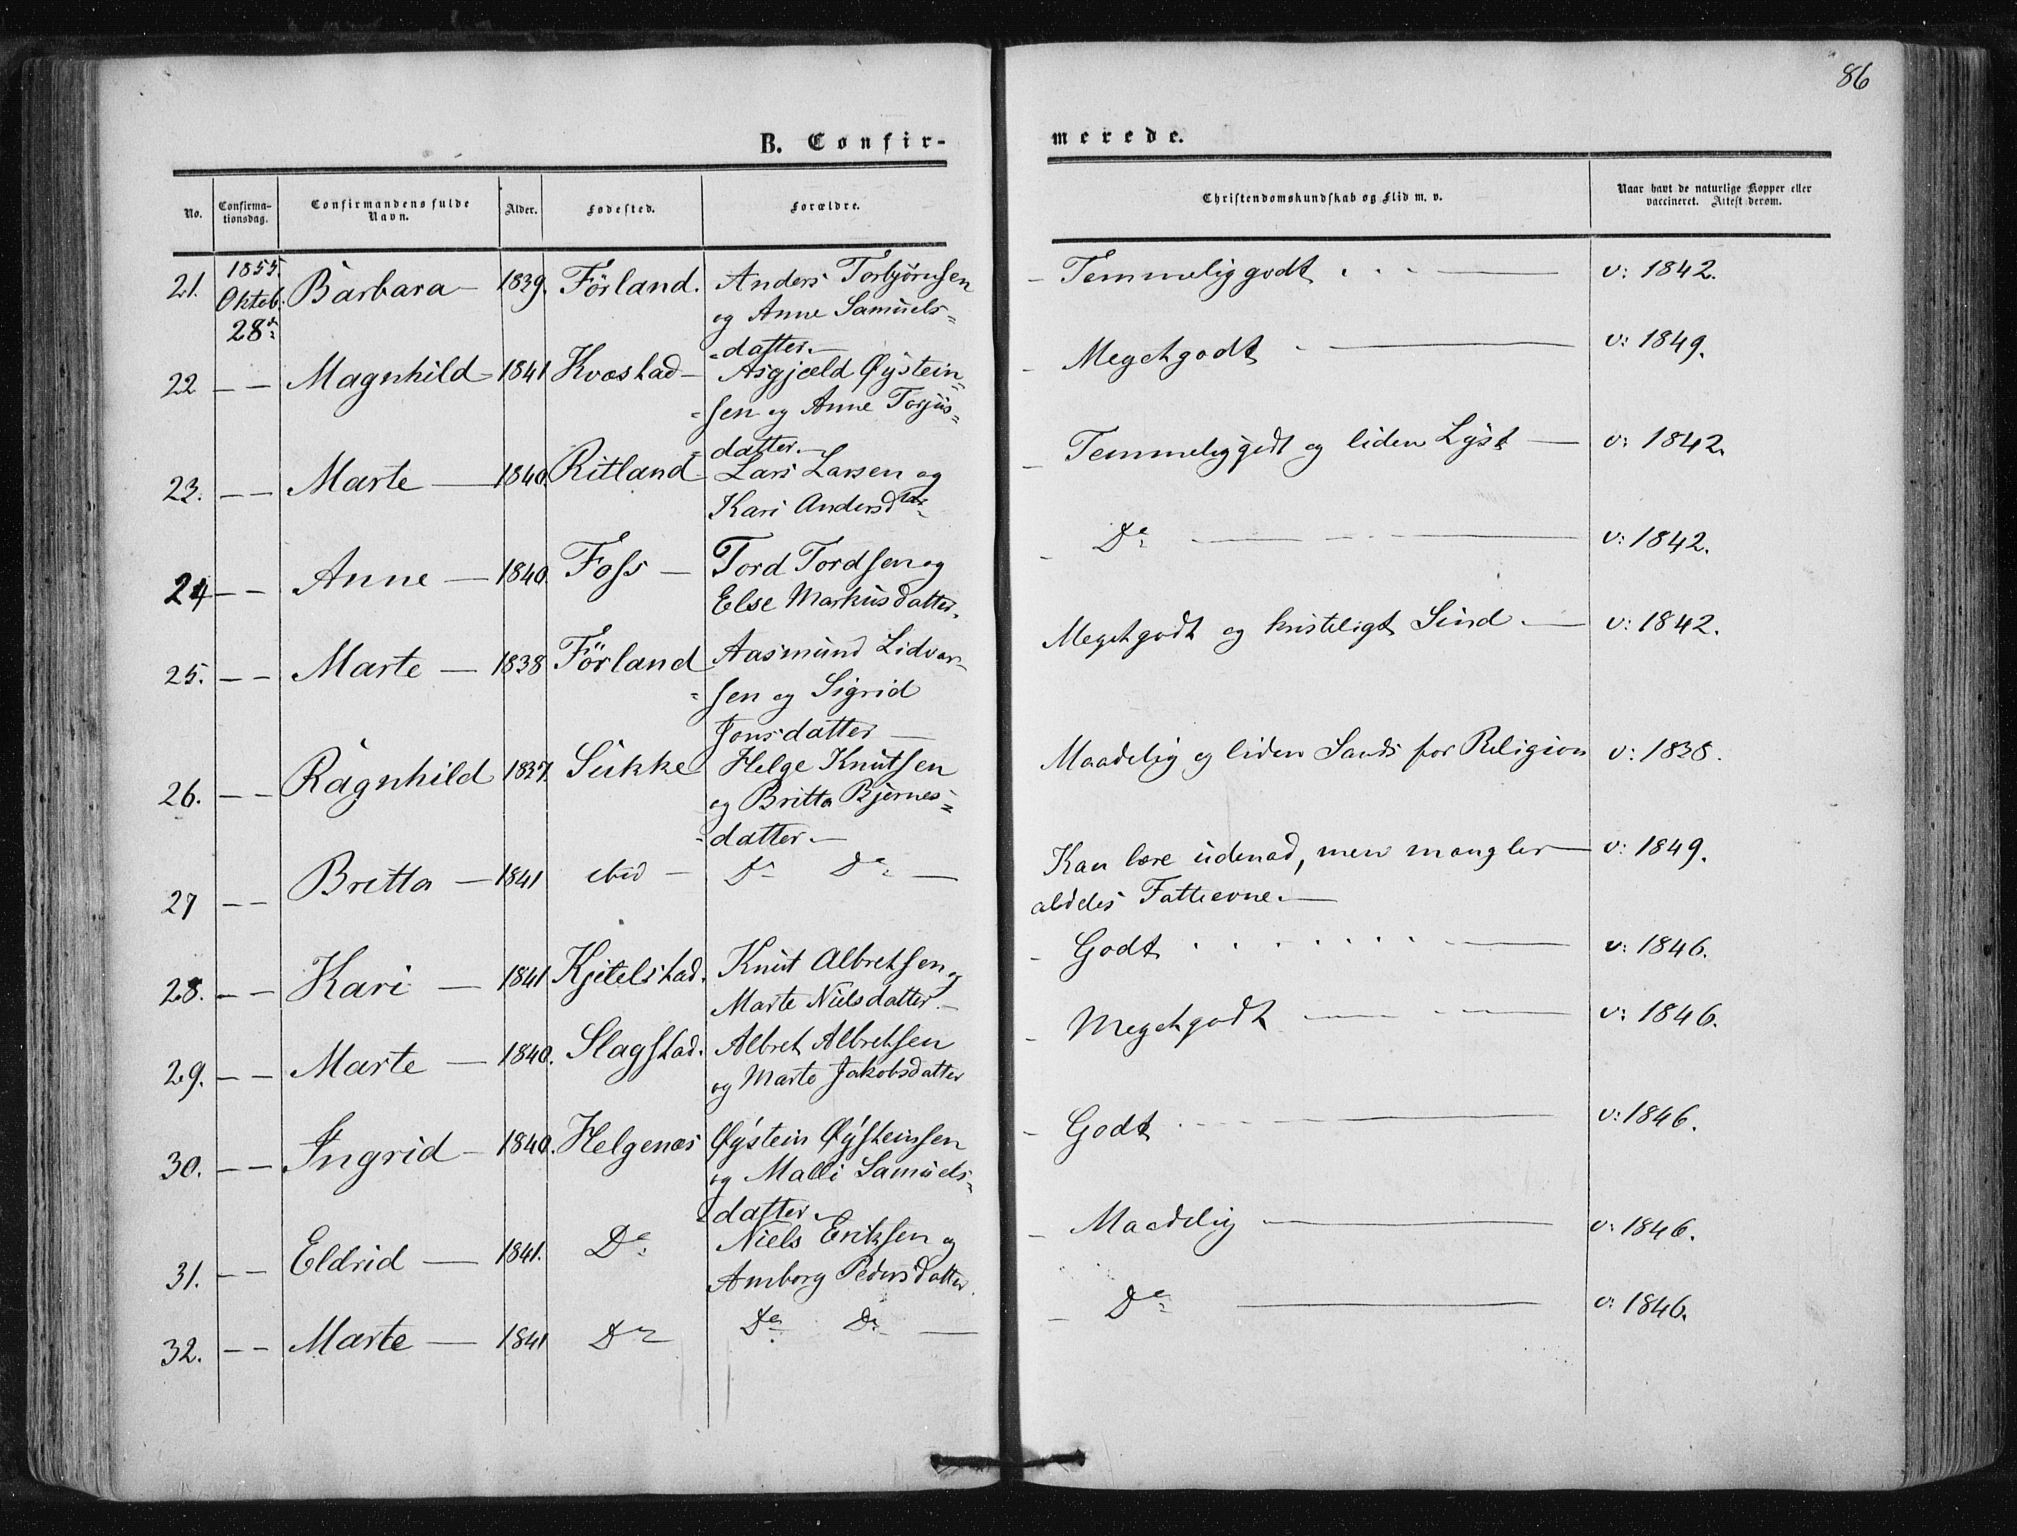 86
B. Confir-
merede.
No.
Confirma-
tionsdag.
Confirmandens fulde
Navn.
Alder.
Fødested.
Forældre.
Christendomskundskab og Flid m. v.
Naar havt de naturlige Kopper eller
vaccineret. Attest derom.
21. 1855. Barbara — 1839. Förland. Anders Torbjørnsen - Temmelig godt . . . — v: 1842.
Oktob. og Anne Samuels=
28de =datter.—
22 — — Magnhild 1841 Kvæstad — Asgjæld Øystein= - Megetgodt - — v: 1849.
=sen og Anne Torjus=
=datter.—
23. — — Marte — 1840. Ritland Lars Larsen og - Temmeliggodt og liden Lyst — v: 1842.
Kari Andersdtr
24 — — Anne — 1840. Foss — Tord Tordsen og - Do — - - — v: 1842.
Else Markusdatter.
25. — — Marte — 1838 Förland Aasmund Lidvar= Megetgodt og kristeligt Sind — v: 1842.
=sen og Sigrid
Jonsdatter —
26. — — Ragnhild 1837. Sukke Helge Knutsen Maadelig og liden Sands for Religion v: 1838.
og Britta Bjørnes=
=datter.—
27 — — Britta — 1841 ibid — Do Do — Kan lære udenad, men mangler — v: 1849.
aldeles Fatteevne.—
28. — — Kari — 1841. Kjitelstad. Knut Albretsen og - Godt . . . . . . . — v: 1846.
Marte Nielsdatter.—
29. — — Marte — 1840. Slagstad. Albret Albretsen - Megetgodt — - — v: 1846.
og Marte Jakobsdatter
30. — — Ingrid — 1840. Helgenæs Øystein Øysteinsen - Godt . . . — v: 1846.
og Malli Samuels=
=datter.
31. — — Eldrid — 1841. Do Niels Eriksen og - Maadelig — v: 1846.
Amborg Pedersdatter.
32. — — Marte — 1841 Do Do Do — - Do — v: 1846.